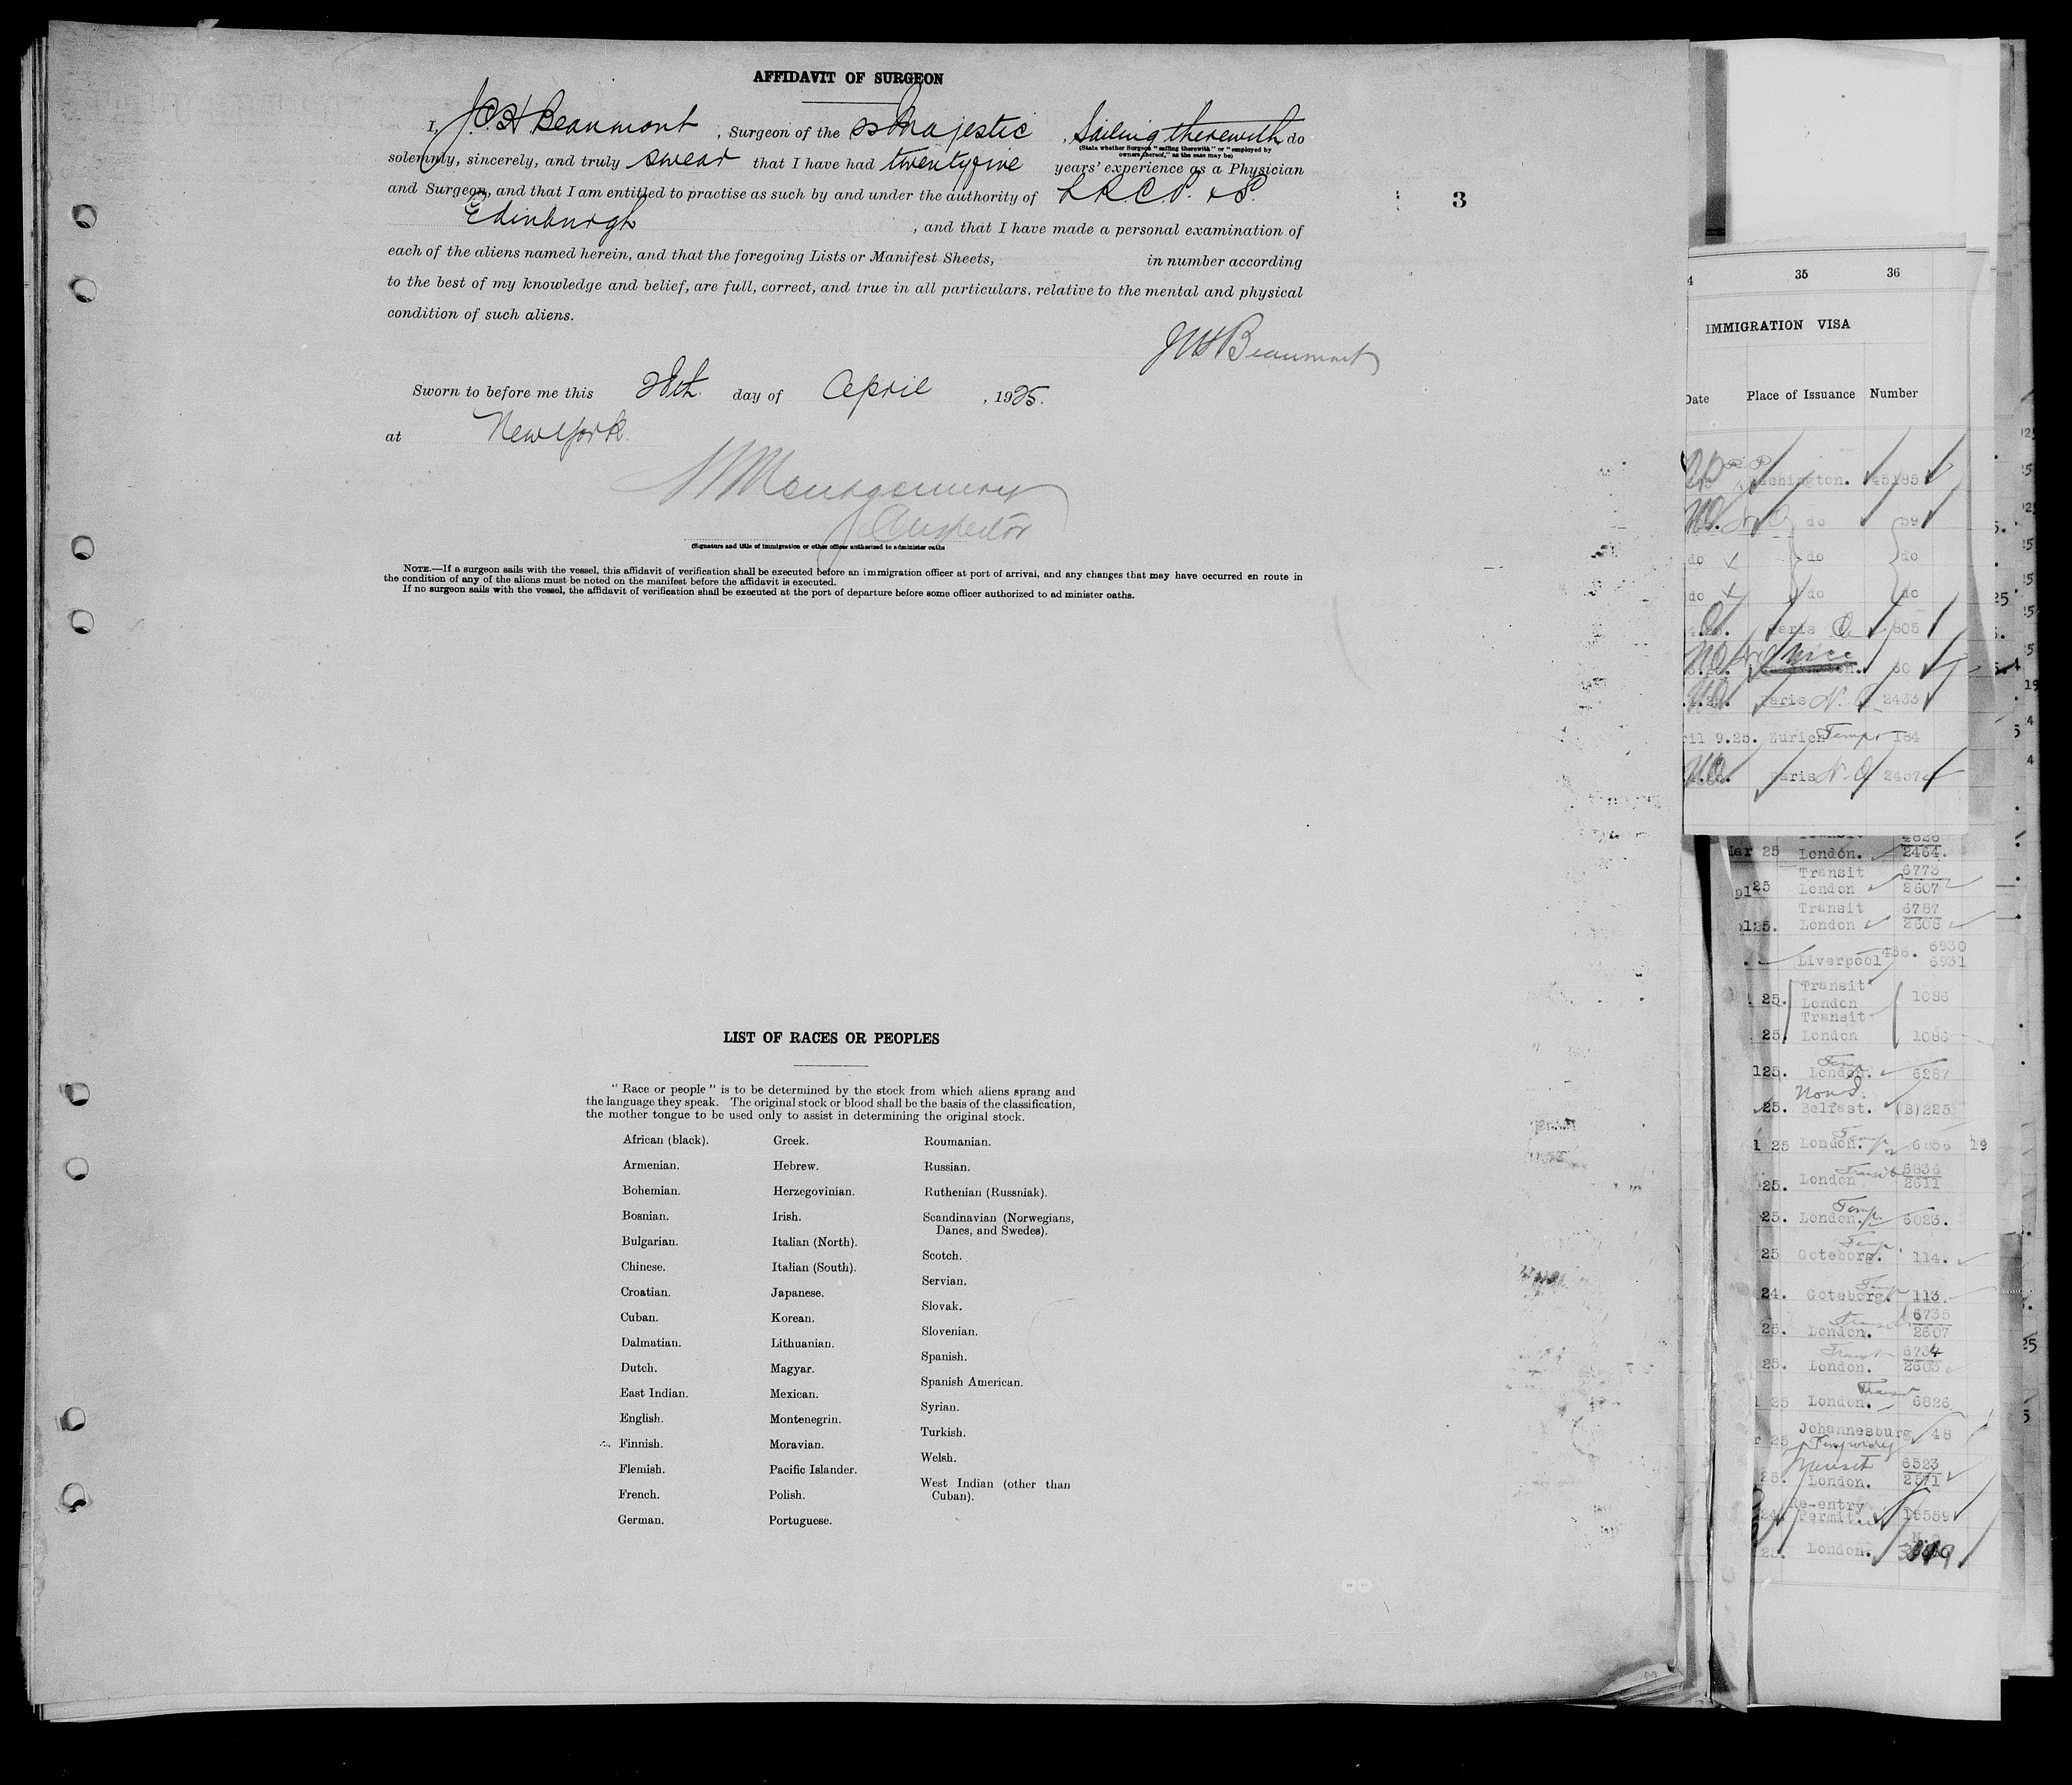 AFFIDAVIT OF SURGEON
I, J.C.H Beaumont, Surgeon of the SS Majestic, Sailing therewith do
(State whether Surgeon "sailing therewith" or "employed by
owners thereof," as the case may be)
solemnly, sincerely, and truly swear that I have had twentyfive years' experience as a Physician
and Surgeon, and that I am entitled to practise as such by and under the authority of L.R.C.P. & S.
Edinburgh, and that I have made a personal examination of
each of the aliens named herein, and that the foregoing Lists or Manifest Sheets, in number according
to the best of my knowledge and belief, are full, correct, and true in all particulars, relative to the mental and physical
condition of such aliens.
Beaumont
Sworn to before me this 28th day of April, 1925.
at New York.
Montgomery
Inspector
(Signature and title of immigration or other officer authorized to administer oaths
NOTE.—If a surgeon sails with the vessel, this affidavit of verification shall be executed before an immigration officer at port of arrival, and any changes that may have occurred en route in
the condition of any of the aliens must be noted on the manifest before the affidavit is executed.
If no surgeon sails with the vessel, the affidavit of verification shall be executed at the port of departure before some officer authorized to ad minister oaths.
3
LIST OF RACES OR PEOPLES
"Race or people" is to be determined by the stock from which aliens sprang and
the language they speak. The original stock or blood shall be the basis of the classification,
the mother tongue to be used only to assist in determining the original stock.
African (black).
Armenian.
Bohemian.
Bosnian.
Bulgarian.
Chinese.
Croatian.
Cuban.
Dalmatian.
Dutch.
East Indian.
English.
Finnish.
Flemish.
French.
German.
Greek.
Hebrew.
Herzegovinian.
Irish.
Italian (North).
Italian (South).
Japanese.
Korean.
Lithuanian.
Magyar.
Mexican.
Montenegrin.
Moravian.
Pacific Islander.
Polish.
Portuguese.
Roumanian.
Russian.
Ruthenian (Russniak).
Scandinavian (Norwegians,
Danes, and Swedes).
Scotch.
Servian.
Slovak.
Slovenian.
Spanish.
Spanish American.
Syrian.
Turkish.
Welsh.
West Indian (other than
Cuban).
4 35 36
IMMIGRATION VISA
Date Place of Issuance Number
do
do do do
do do do
Paris 805
Nice
Paris 2433
9.25. Zurich Temp 184
Paris
Mar 25 London. 2464.
Transit 6773
25 London 2607
Transit 6787
25. London 2608
Liverpool 6930
6931
Transit
25. London 1086
Transit
25. London 1086
Temp
25. London. 6287
25. Belfast. (B)225
Temp
25 London. 6856 19
Transit 6836
25. London 2611
Temp
25. London. 6023.
Temp
25 Goteborg. 114.
Temp
24. Goteborg. 113.
6735
25. London. 2607
Transit 6734
25. London. 2603
Transit
25 London. 6826
Johannesburg 48
25 Temporary
Transit 6523
25. London. 2511
Re-entry
24 Permit. 16559
25. London.